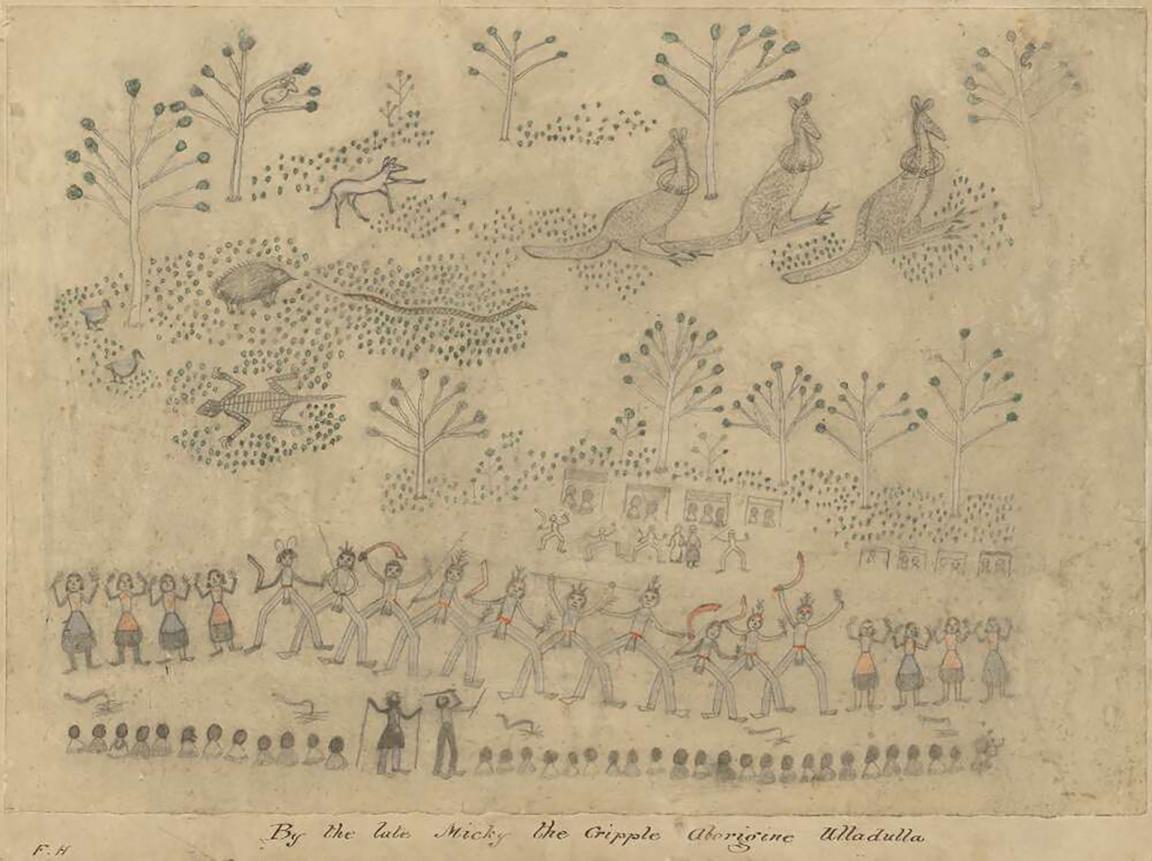 By the late Micky the Cripple Aborigine Ulladulla
F. H